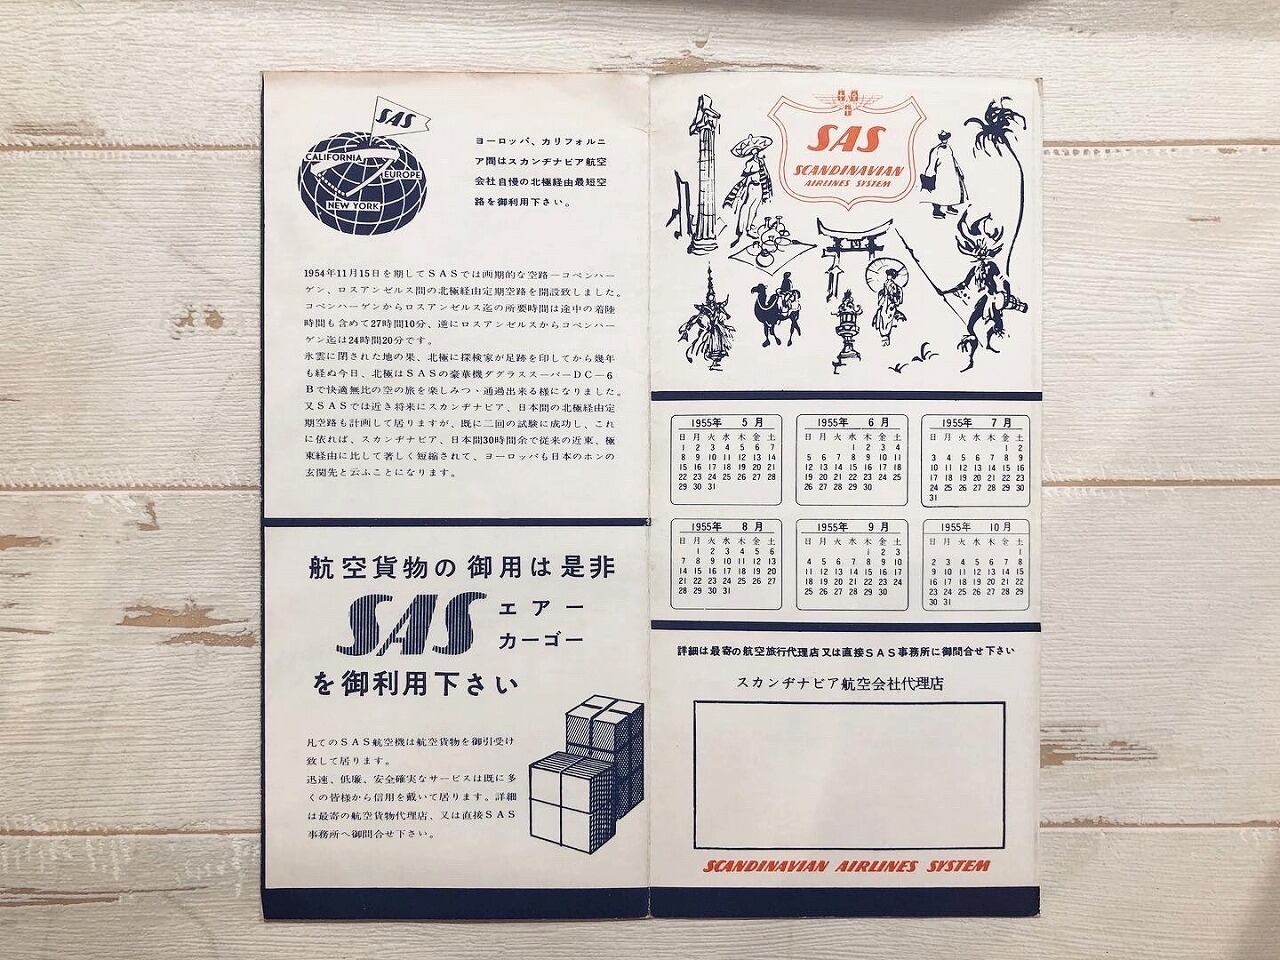 SAS
CALIFORNIA
EUROPE
NEW YORK
ヨーロッパ、カリフォルニ
ア間はスカンヂナビア航空
会社自慢の北極経由最短空
路を御利用下さい。
1954年11月15日を期してSASでは画期的な空路―コペンハー
ゲン、ロスアンゼルス間の北極経由定期空路を開設致しました。
コペンハーゲンからロスアンゼルス迄の所要時間は途中の着陸
時間も含めて27時間10分、逆にロスアンゼルスからコペンハー
ゲン迄は24時間20分です。
氷雲に閉された地の果、北極に探検家が足跡を印してから幾年
も経ぬ今日、北極はSASの豪華機ダグラススーパーDC―6
Bで快適無比の空の旅を楽しみつゝ通過出来る様になりました。
又SASでは近き将来にスカンヂナビア、日本間の北極経由定
期空路も計画して居りますが、既に二回の試験に成功し、これ
に依れば、スカンヂナビア、日本間30時間余で従来の近東、極
東経由に比して著しく短縮されて、ヨーロッパも日本のホンの
玄関先と云ふことになります。
航空貨物の御用は是非
SAS エアー
カーゴー
を御利用下さい
凡てのSAS航空機は航空貨物を御引受け
致して居ります。
迅速、低廉、安全確実なサービスは既に多
くの皆様から信用を戴いて居ります。詳細
は最寄の航空貨物代理店、又は直接SAS
事務所へ御問合せ下さい。
SAS
SCANDINAVIAN
AIRLINES SYSTEM
1955年 5月
日 月 火 水 木 金 土
1 2 3 4 5 6 7
8 9 10 11 12 13 14
15 16 17 18 19 20 21
22 23 24 25 26 27 28
29 30 31
1955年 6月
日 月 火 水 木 金 土
1 2 3 4
5 6 7 8 9 10 11
12 13 14 15 16 17 18
19 20 21 22 23 24 25
26 27 28 29 30
1955年 7月
日 月 火 水 木 金 土
1 2
3 4 5 6 7 8 9
10 11 12 13 14 15 16
17 18 19 20 21 22 23
24 25 26 27 28 29 30
31
1955年 8月
日 月 火 水 木 金 土
1 2 3 4 5 6
7 8 9 10 11 12 13
14 15 16 17 18 19 20
21 22 23 24 25 26 27
28 29 30 31
1955年 9月
日 月 火 水 木 金 土
1 2 3
4 5 6 7 8 9 10
11 12 13 14 15 16 17
18 19 20 21 22 23 24
25 26 27 28 29 30
1955年 10月
日 月 火 水 木 金 土
1
2 3 4 5 6 7 8
9 10 11 12 13 14 15
16 17 18 19 20 21 22
23 24 25 26 27 28 29
30 31
詳細は最寄の航空旅行代理店又は直接SAS事務所に御問合せ下さい
スカンヂナビア航空会社代理店
SCANDINAVIAN AIRLINES SYSTEM